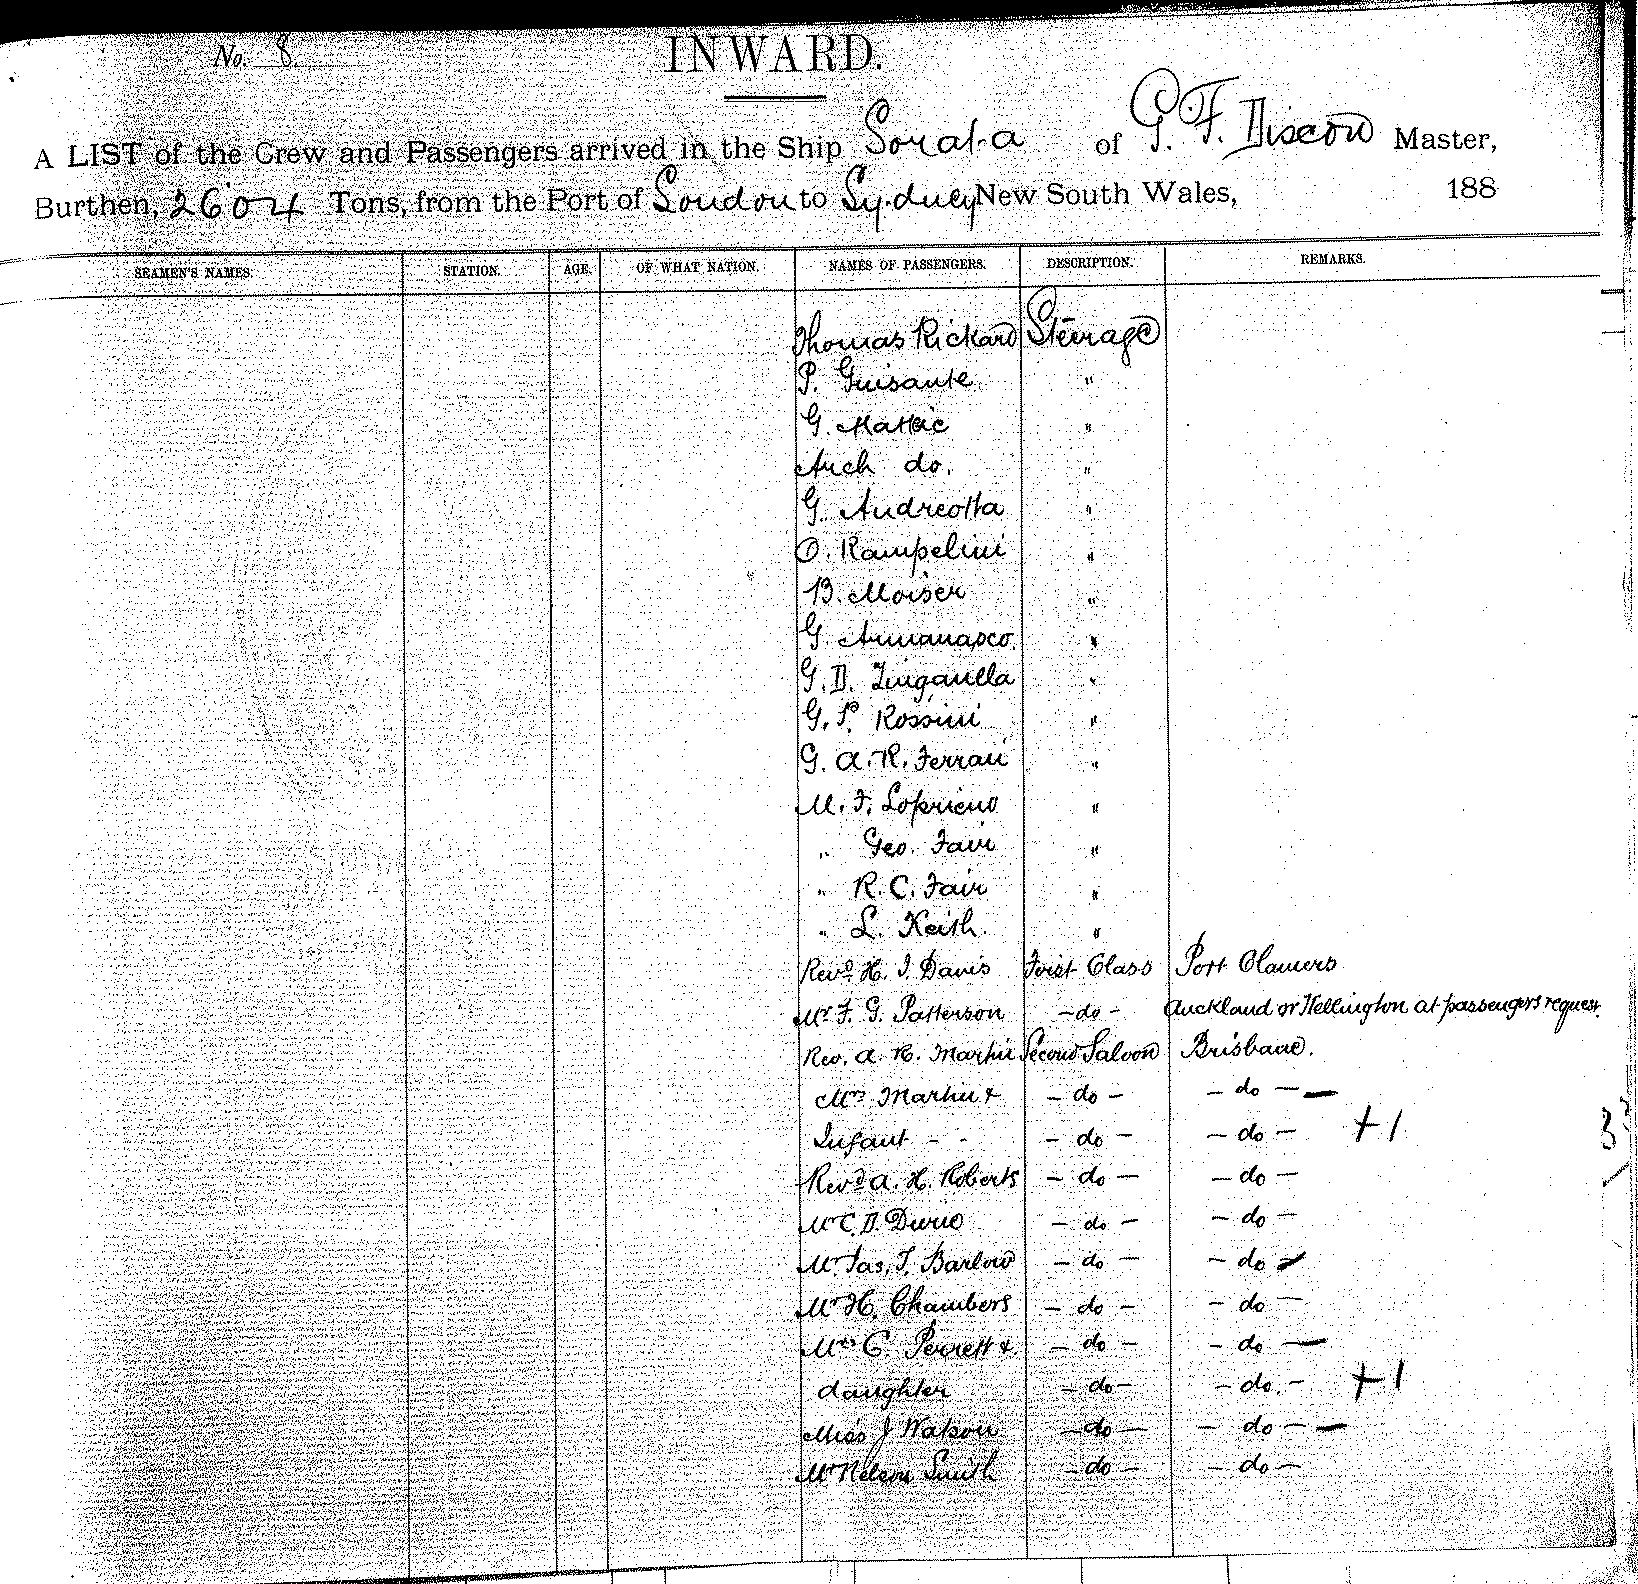 No. 8.
INWARD.
A LIST of the Crew and Passengers arrived in the Ship Sorata of G. F. Discon Master,
Burthen, 2604 Tons, from the Port of London to Sydney New South Wales, 188
SEAMEN'S NAMES. STATION. AGE. OF WHAT NATION. NAMES OF PASSENGERS. DESCRIPTION. REMARKS.
Thomas Rickard Steerage
P. Guisante "
G. Mattei "
Arch do. "
G. Andreotta "
O. Rampelini "
B. Moiser "
G. Armanasco "
G. D. Zinganella "
G. P. Rossini "
G. A. R. Ferrari "
M. F. Loprieno "
" Geo. Fair "
" R. C. Fair "
" L. Keith "
Revd H. J. Davis First Class Port Chamers
Mr F. G. Patterson - do - Auckland or Wellington at passengers request
Rev. A. R. Martin Second Saloon Brisbane.
Mrs Martin & - do - - do -
Infant - - - do - - do - +1
Revd A. H. Roberts - do - - do -
Mr C. D. - do - - do -
Mr Jas. T. Barlow - do - - do -
Mr H. Chambers - do - - do -
Mrs C. Perrett & - do - - do -
daughter - do - - do - +1
Miss J Watson - do - - do -
Mr Nelson Smith - do - - do -